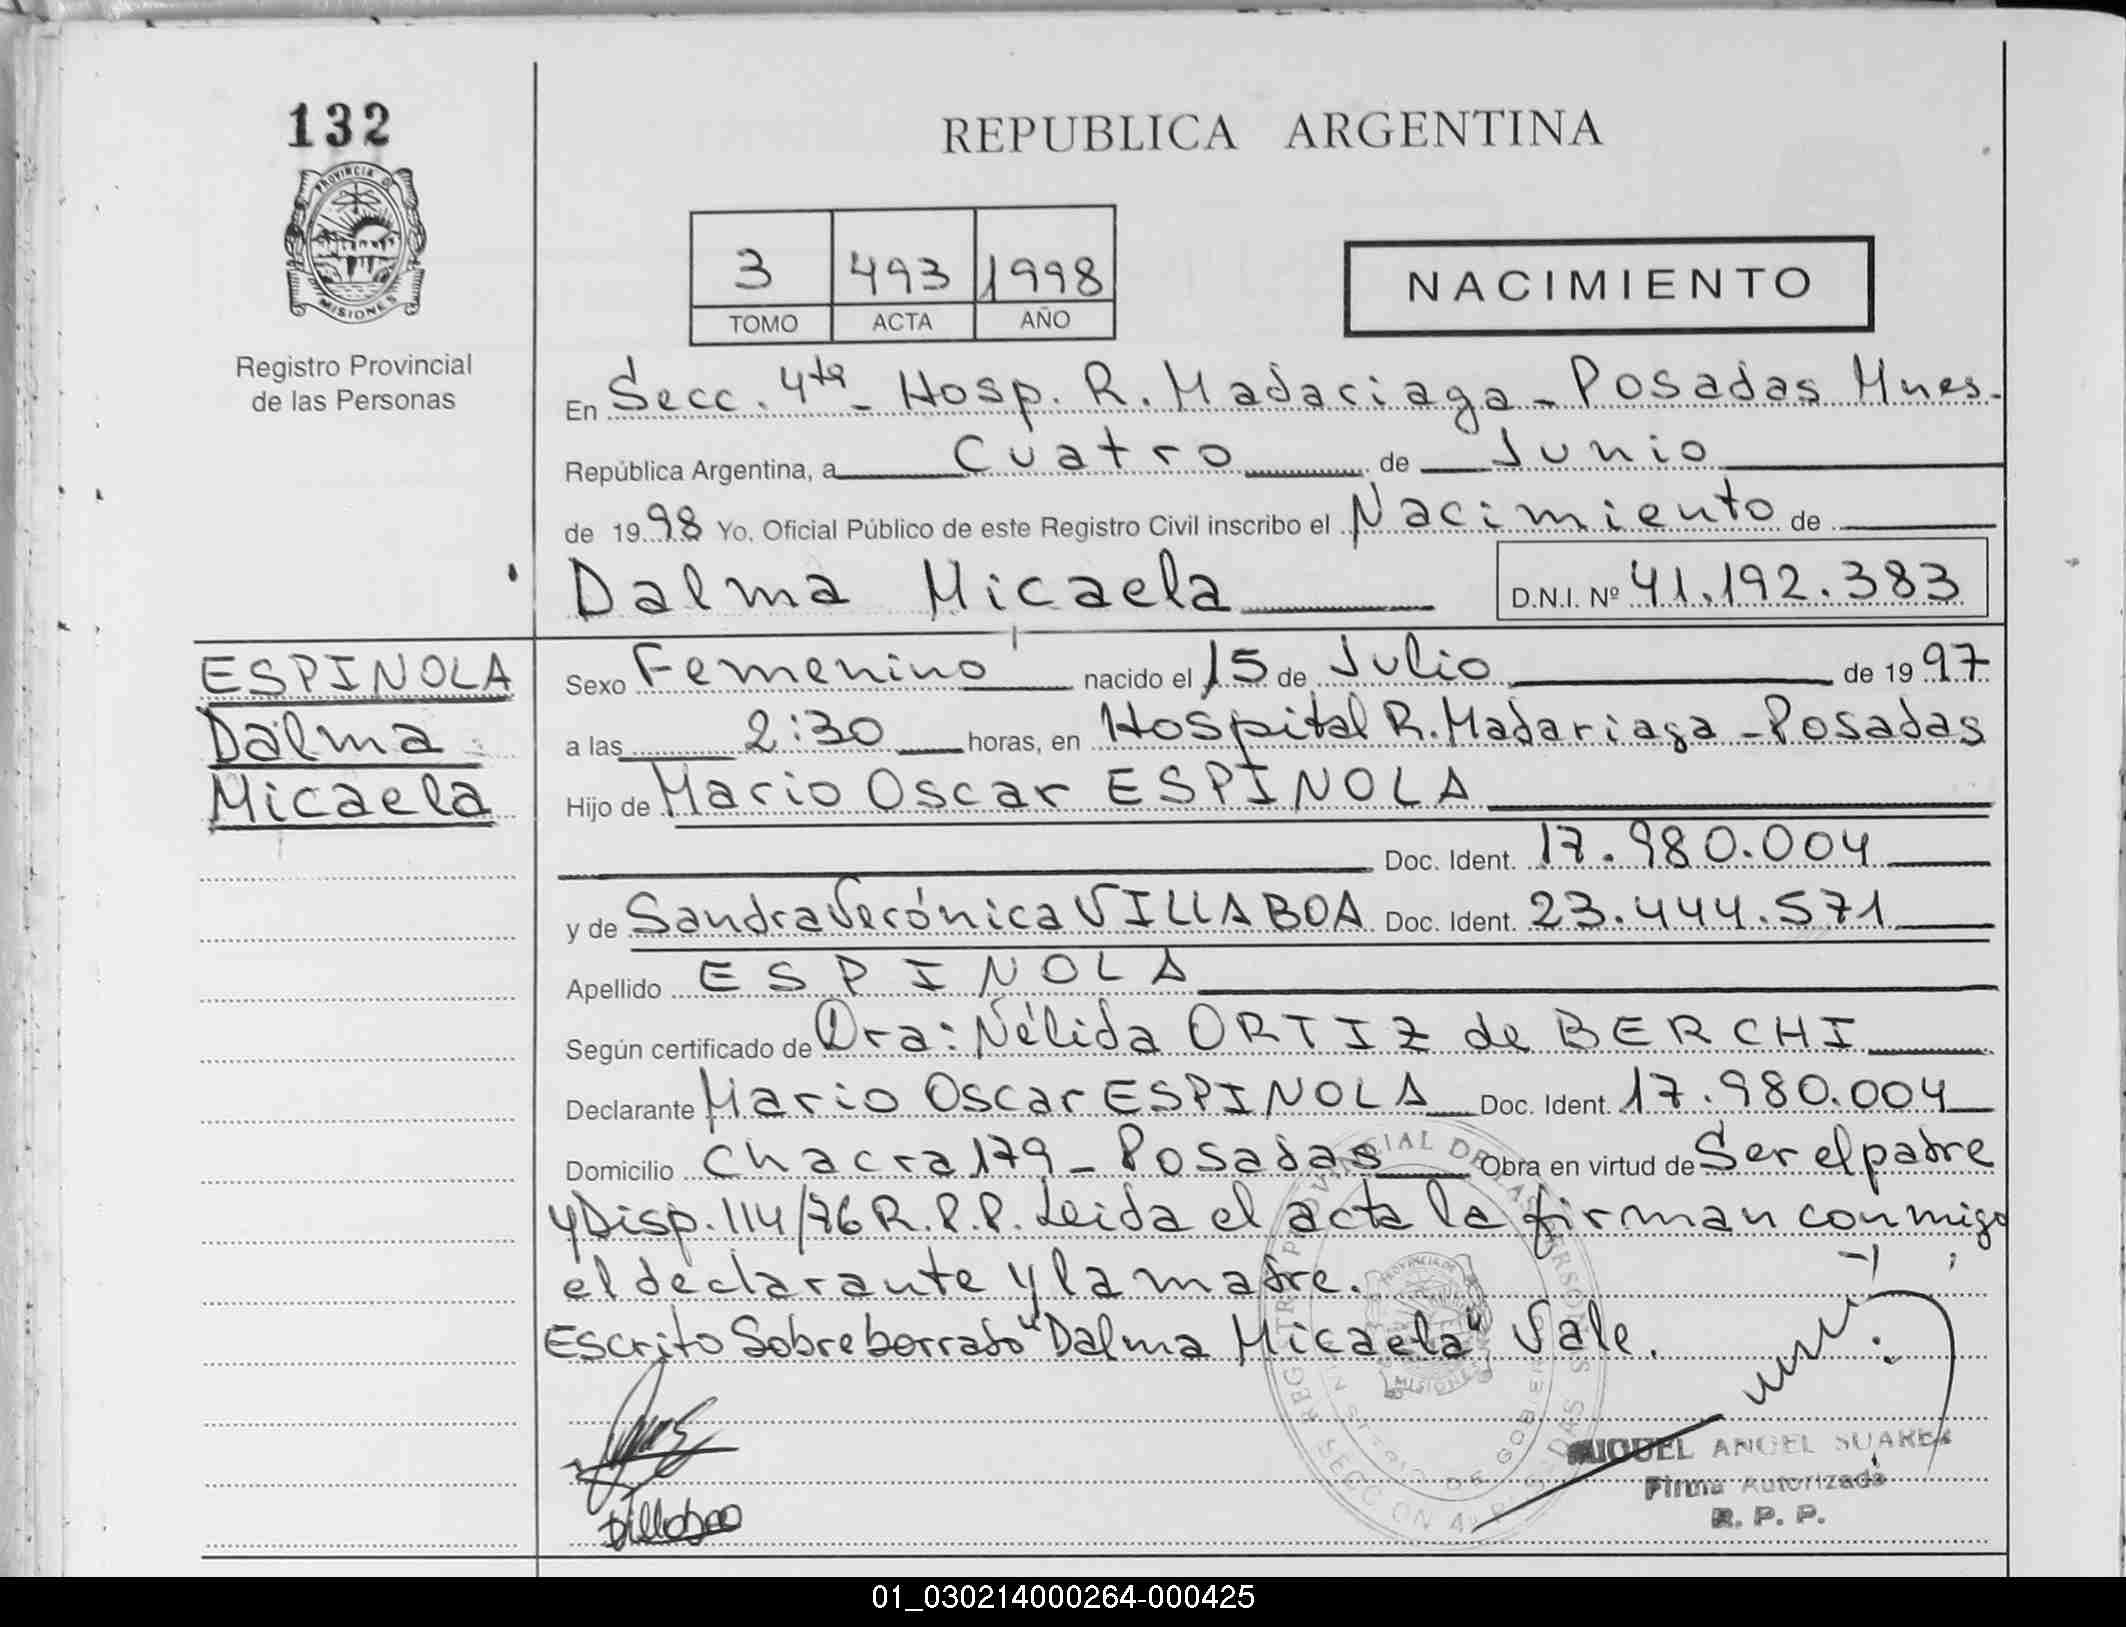 132
PROVINCIA DE MISIONES
Registro Provincial
de las Personas
REPUBLICA ARGENTINA
3 493 1998
TOMO ACTA AÑO
NACIMIENTO
En Secc. 4ta - Hosp. R. Madaciaga - Posadas Mnes.
República Argentina, a Cuatro de Junio
de 1998 Yo, Oficial Público de este Registro Civil inscribo el Nacimiento de
Dalma Micaela D.N.I. Nº 41.192.383
ESPINOLA
Dalma
Micaela
Sexo Femenino nacido el 15 de Julio de 1997
a las 2:30 horas, en Hospital R. Madariaga - Posadas
Hijo de Mario Oscar ESPINOLA
Doc. Ident. 17.980.004
y de Sandra Verónica VILLABOA Doc. Ident. 23.444.571
Apellido ESPINOLA
Según certificado de Dra: Nélida ORTIZ de BERCHI
Declarante Mario Oscar ESPINOLA Doc. Ident. 17.980.004
Domicilio Chacra 179 - Posadas Obra en virtud de Ser el padre
y Disp. 114/76 R.P.P. Leida el acta la firman conmigo
el declarante y la madre.
Escrito Sobre borrado "Dalma Micaela" Vale.
MIGUEL ANGEL SUAREZ
Firma Autorizada
R. P. P.
01_030214000264-000425